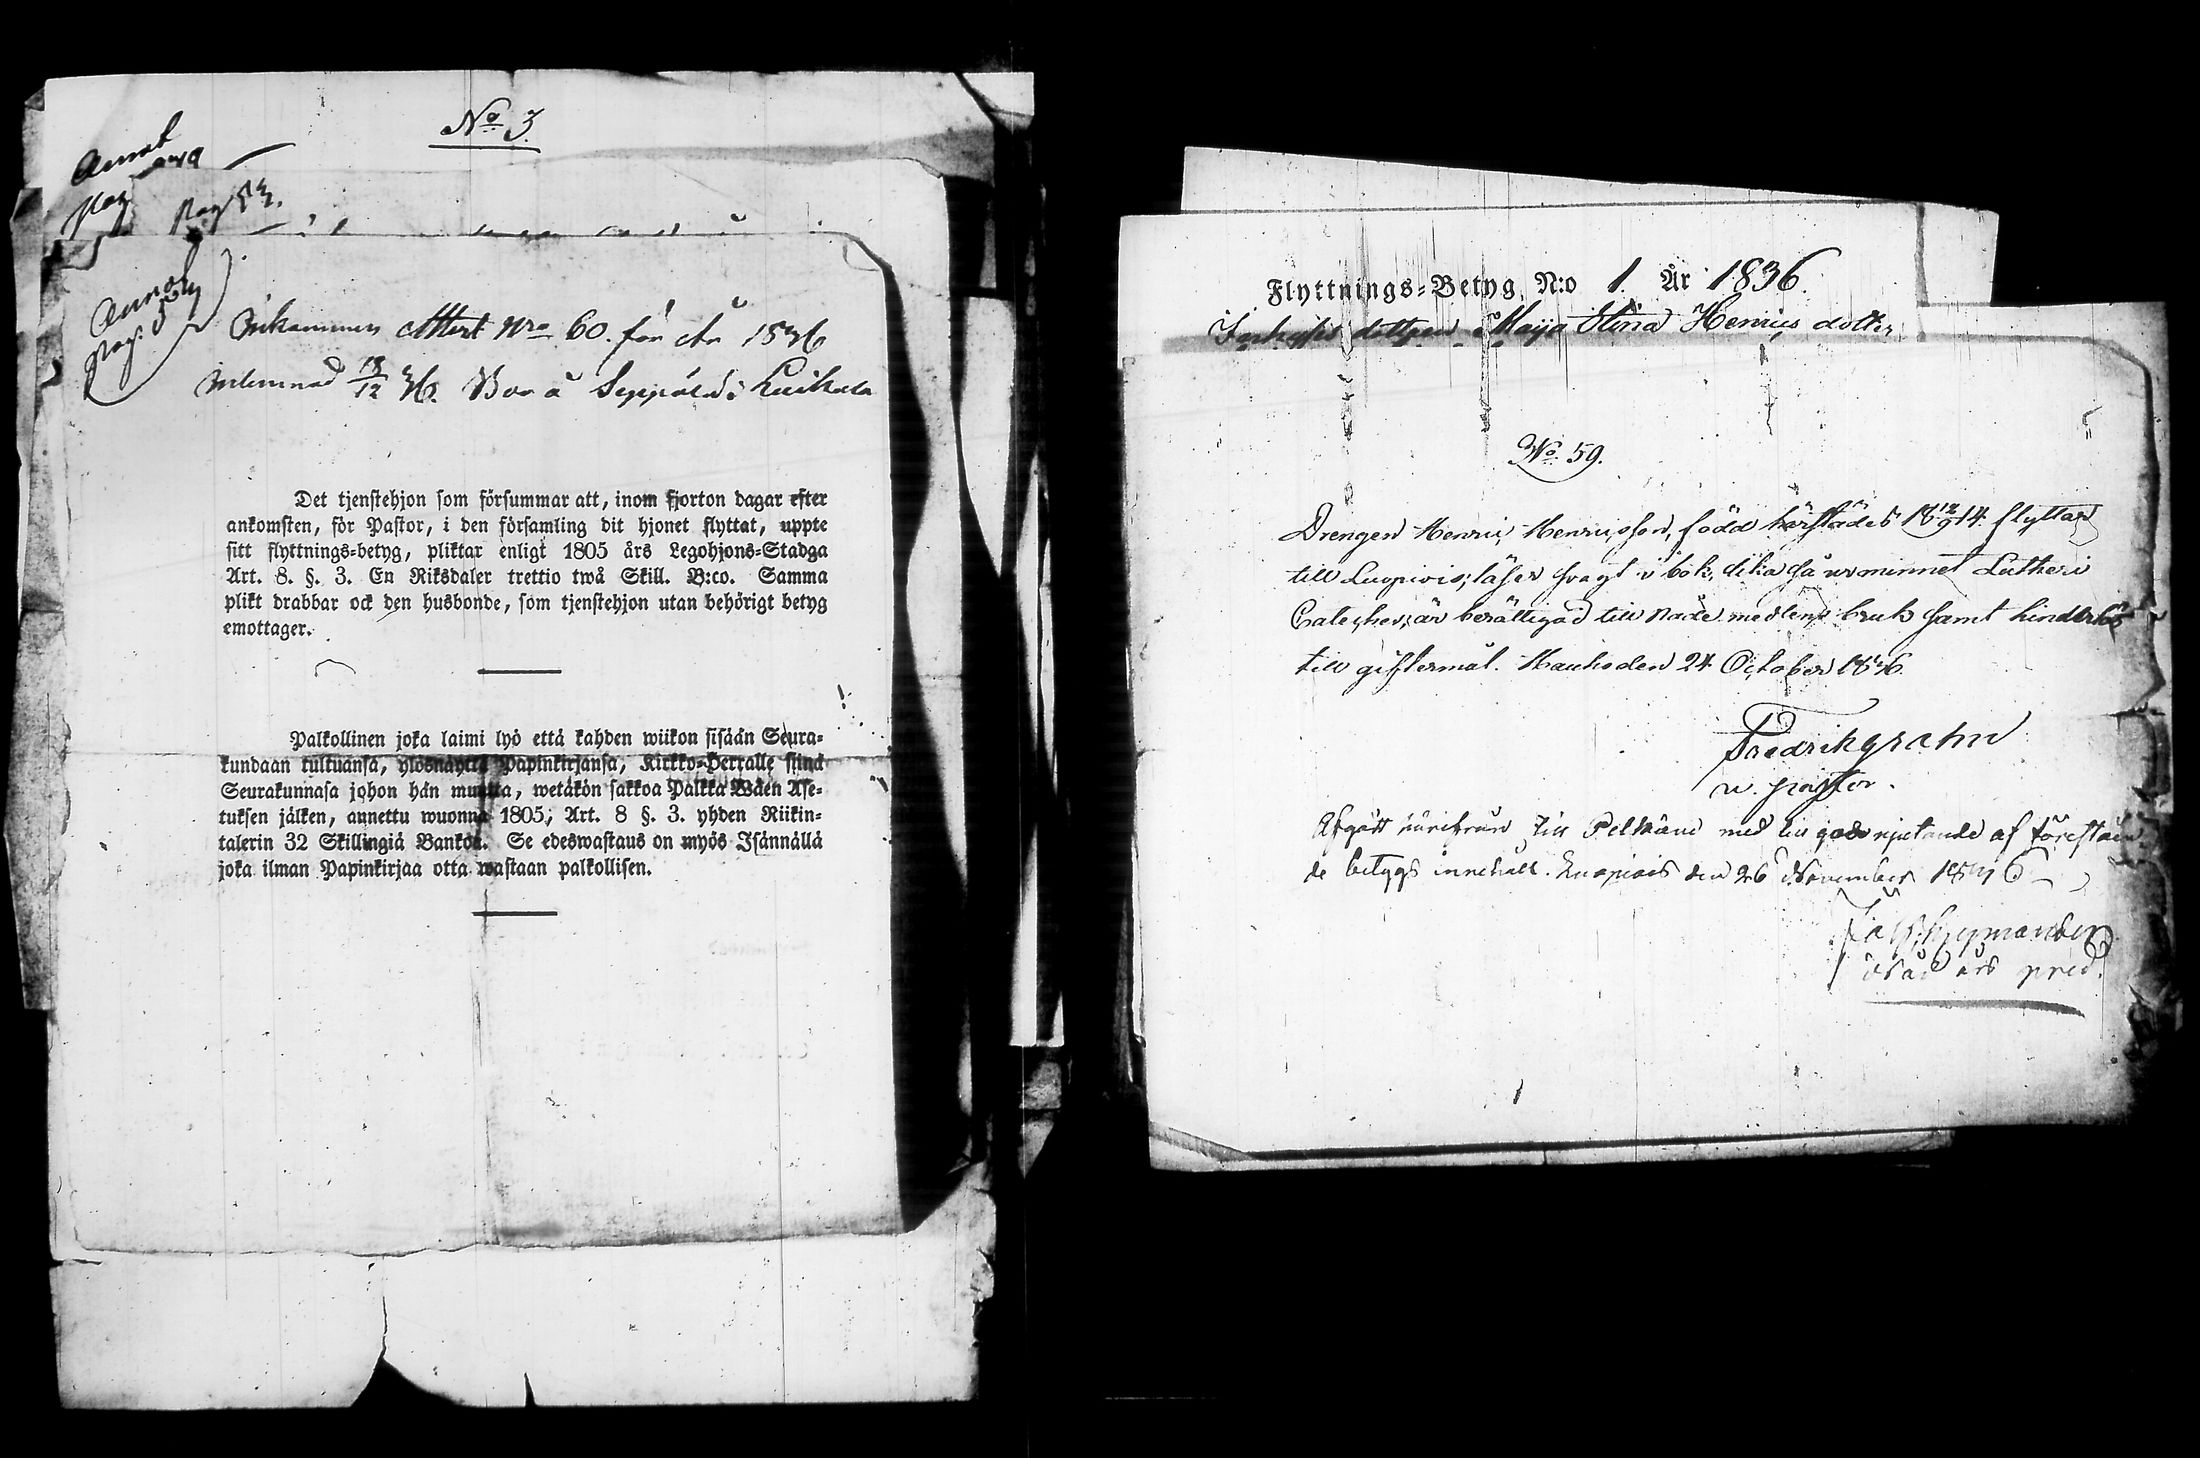 No 3.
Annot
pag
pag 53.
Annot
pag. 5
Inkommen Attest Nro 60. för år 1836
inlemnad 18/12 36. Bor å Seppälä i Luikala
Det tjenstehjon som försummar att, inom fjorton dagar efter
ankomsten, för Pastor, i den församling dit hjonet flyttat, uppte
sitt flyttnings-betyg, pliktar enligt 1805 års Legohjons-Stadga
Art. 8. §. 3. En Riksdaler trettio twå Skill. B:co. Samma
plikt drabbar ock den husbonde, som tjenstehjon utan behörigt betyg
emottager.
Palkollinen joka laimi lyö että kahden wiikon sisään Seura-
kundaan tultuansa, ylösnäyttä Papinkirjansa, Kirkko-Herralle siinä
Seurakunnasa johon hän muutta, wetäkön sakkoa Palkka Wäen Ase-
tuksen jälken, annettu wuonna 1805, Art. 8 §. 3. yhden Riikin-
talerin 32 Skillingiä Bankos. Se edeswastaus on myös Isännällä
joka ilman Papinkirjaa otta wastaan palkollisen.
Flyttnings-Betyg N:o 1. År 1836.
dottren Maija Stina Henrics dotter
No 59.
Drengen Henric Henricsson, född härstädes 18 12/9 14. flyttar
till Luopiois; läser svagt i bok, lika så ur minnet Lutheri
Cateches; är berättigad till nådemedlens bruk samt hinderlös
till giftermål. Hauho den 24 October 1836.
Fredrik Grahn
v. pastor.
Afgått härifrån till Pelkäne med lika godt njutande af förestäen-
de betygs innehåll. Luopiois den 26 November 1836
pred.